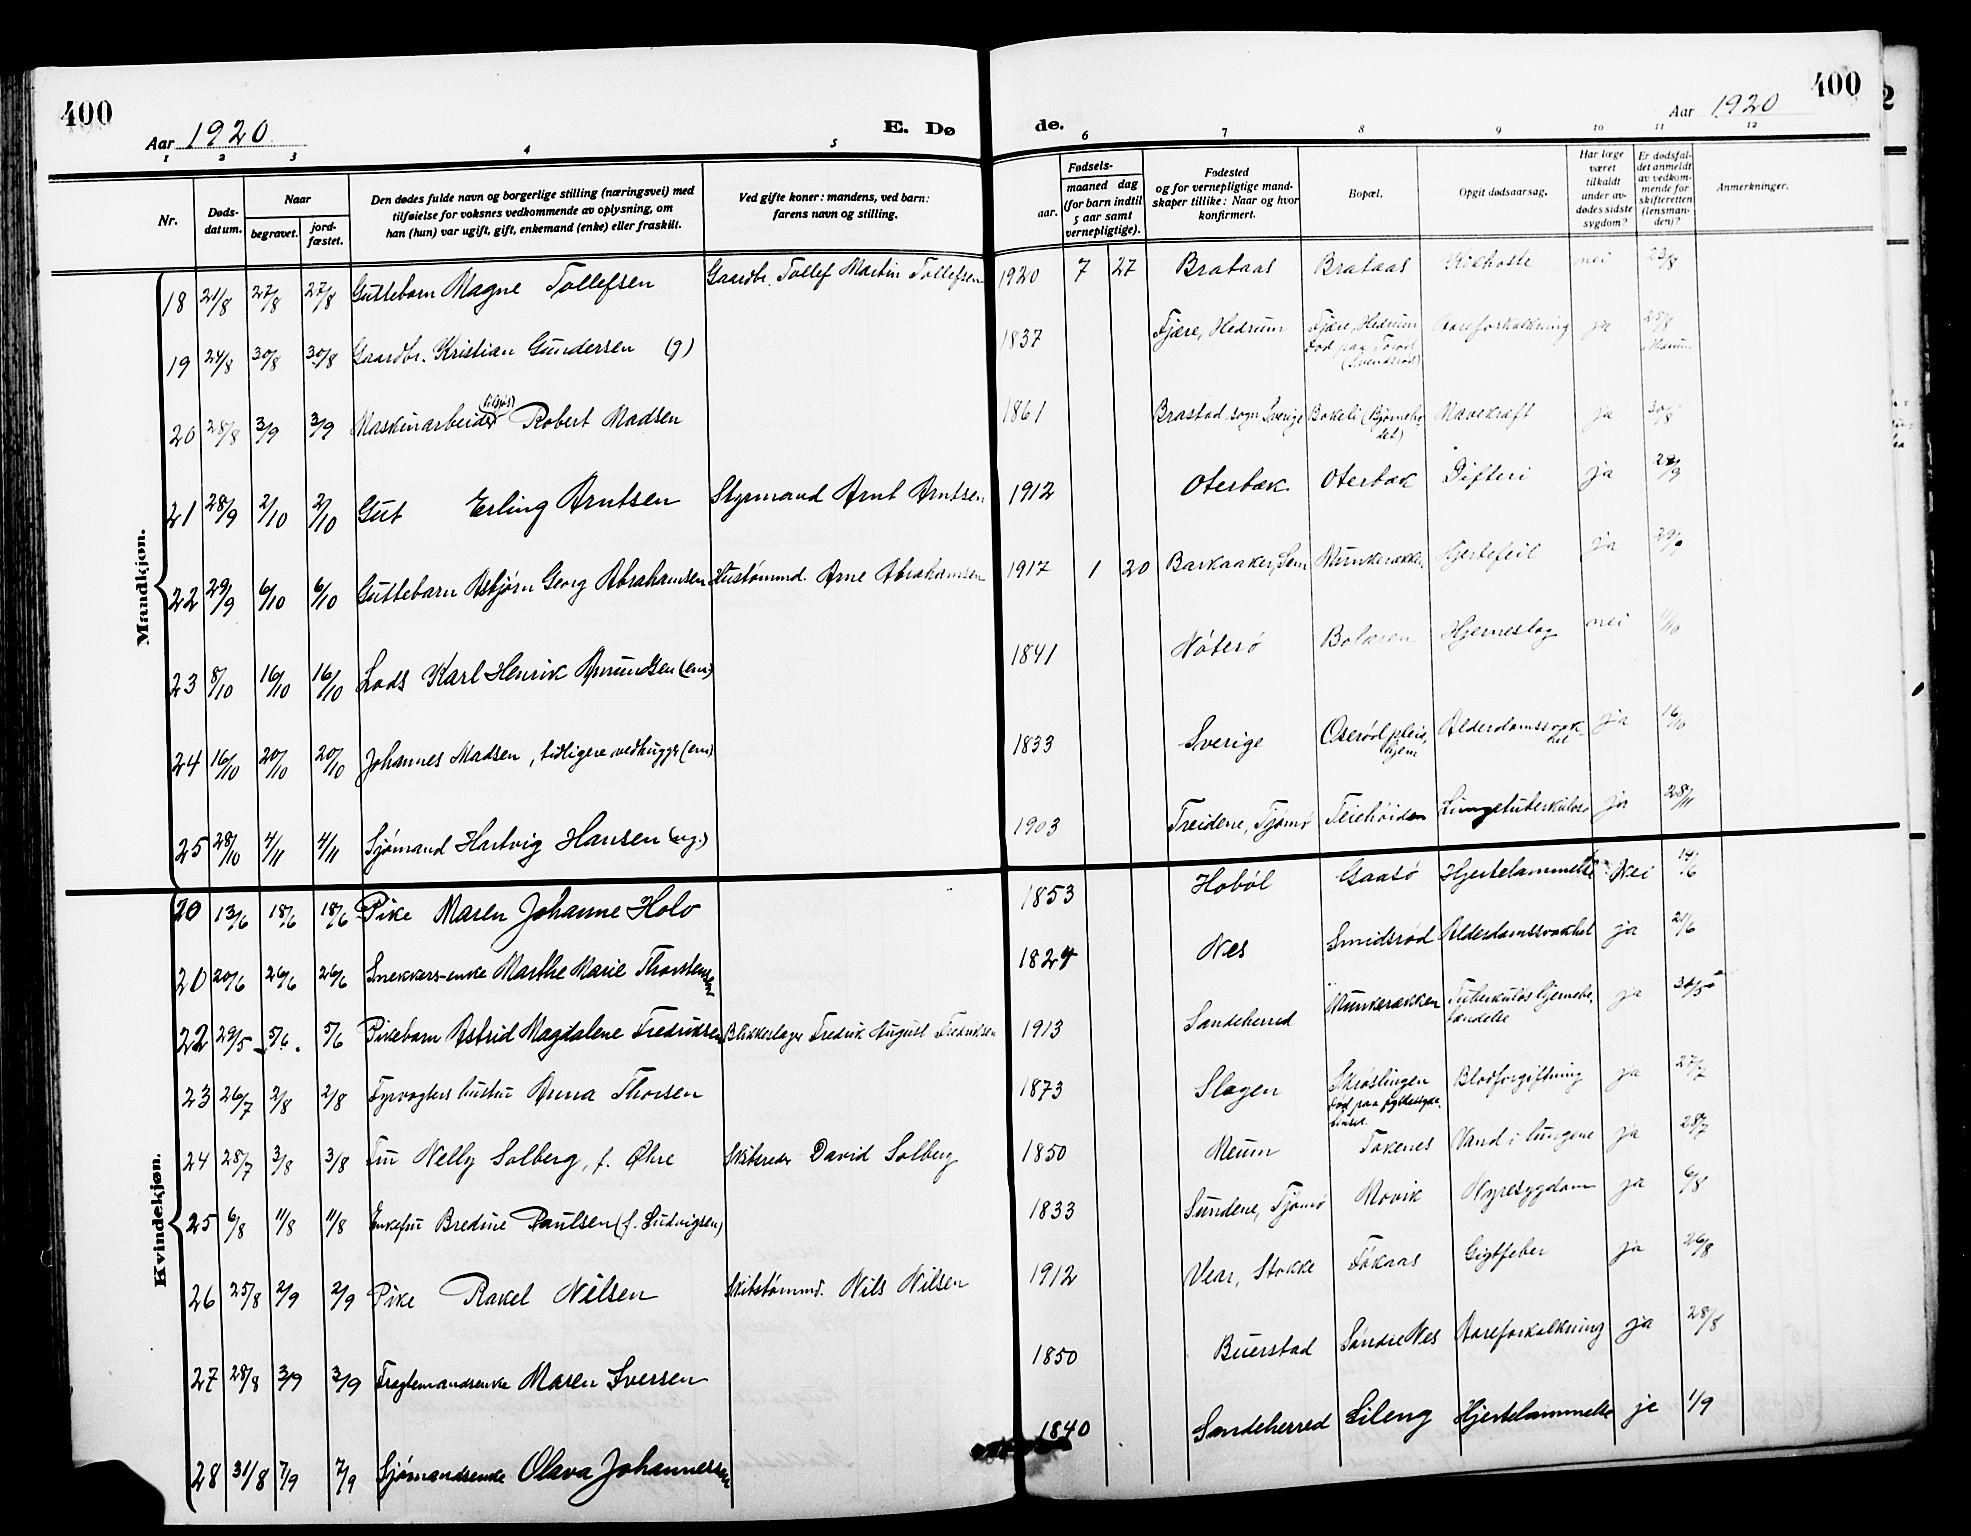 400
Aar 1920.
E. Dø
de.
Aar 1920
400
1 2 3 4 5 6 7 8 9 10 11 12
Nr.
Døds-
datum.
Naar
begravet.
jord-
fæstet.
Den dødes fulde navn og borgerlige stilling (næringsvei) med
tilføielse for voksnes vedkommende av oplysning, om
han (hun) var ugift, gift, enkemand (enke) eller fraskilt.
Ved gifte koner: mandens, ved barn:
farens navn og stilling.
Fødsels-
aar.
maaned dag
(for barn indtil
5 aar samt
vernepligtige).
Fødested
og for vernepligtige mand-
skaper tillike: Naar og hvor
konfirmert.
Bopæl.
Opgit dødsaarsag.
Har læge
været
tilkaldt
under av-
dødes sidste
sygdom?
Er dødsfal-
det anmeldt
av vedkom-
mende for
skifteretten
(lensman-
den)?
Anmerkninger.
Mandkjøn.
18 21/8 27/8 27/8 Guttebarn Magne Tollefsen Gaardbr. Tollef Martin Tollefsen 1920 7 27 Brataas Brataas Kikhoste nei 23/8
19 24/8 30/8 30/8 Gaardbr. Kristian Gundersen (g) 1837 Fjære, Hedrum Fjære, Hedrum Aareforkalkning ja 25/8
Død paa Torød
(Svendsrød)
20 28/8 3/9 3/9 Maskinarbeider Robert Madsen 1861 Brastad sogn, Sverige Bokeli (Bjørnebo- Mavekræft ja 30/8
det)
21 28/9 2/10 2/10 Gut Erling Arntsen Styrmand Arnt Arntsen 1912 Oterbæk Oterbæk Difteri ja 28/9
22 29/9 6/10 6/10 Guttebarn Asbjørn Georg Abrahamsen Hustømmd. Arne Abrahamsen 1917 1 20 Barkaaker, Sem Munkerækken Hjertefeil ja 29/9
23 8/10 16/10 16/10 Lods Karl Henrik Amundsen (em) 1841 Nøterø Bolæren Hjerneslag nei 11/10
24 16/10 20/10 20/10 Johannes Madsen, tidligere vedhugger (em) 1833 Sverige Oserød pleie- Alderdomssvak- ja 16/10
hjem het
25 28/10 4/11 4/11 Sjømand Hartvig Hansen (ug.) 1903 Treidene, Tjømø Teiehøiden Lungetuberkulose ja 28/11
Kvindekjøn.
20 13/6 18/6 18/6 Pike Maren Johanne Holv 1853 Hobøl Gaasø Hjertelammelse Nei 14/6
20 20/6 26/6 26/6 Snekkers-enke Marthe Marie Thorstensen 1824 Nes Smidsrød Alderdomssvakhet ja 21/6
22 29/5 5/6 5/6 Pikebarn Astrid Magdalene Fredriksen Blikkeslager Fredrik August Fredriksen 1913 Sandeherred Munkerækken Tuberkuløs hjernebe- ja 30/5
tændelse
23 26/7 2/8 2/8 Fyrvogters hustru Anna Thorsen 1873 Slagen Skrøslingen Blodforgiftning ja 27/7
Død paa fylkessyke-
huset
24 28/7 3/8 3/8 Fru Nelly Solberg, f. Øhre Skibsreder David Solberg 1850 Meum Tokenes Vand i lungene ja 28/7
25 6/8 11/8 11/8 Enkefru Bredine Paulsen (f. Ludvigsen) 1833 Sundene, Tjømø Movik Nyresygdom ja 6/8
26 25/8 2/9 2/9 Pike Rakel Nilsen Skibstømmd. Nils Nilsen 1912 Vear, Stokke Tokaas Gigtfeber ja 26/8
27 28/8 3/9 3/9 Fragtemandsenke Maren Iversen 1850 Buerstad Søndre Nes Aareforkalkning ja 28/8
28 31/8 7/9 7/9 Sjømandsenke Olava Johannessen 1840 Sandeherred Lileng Hjertelammelse ja 1/9